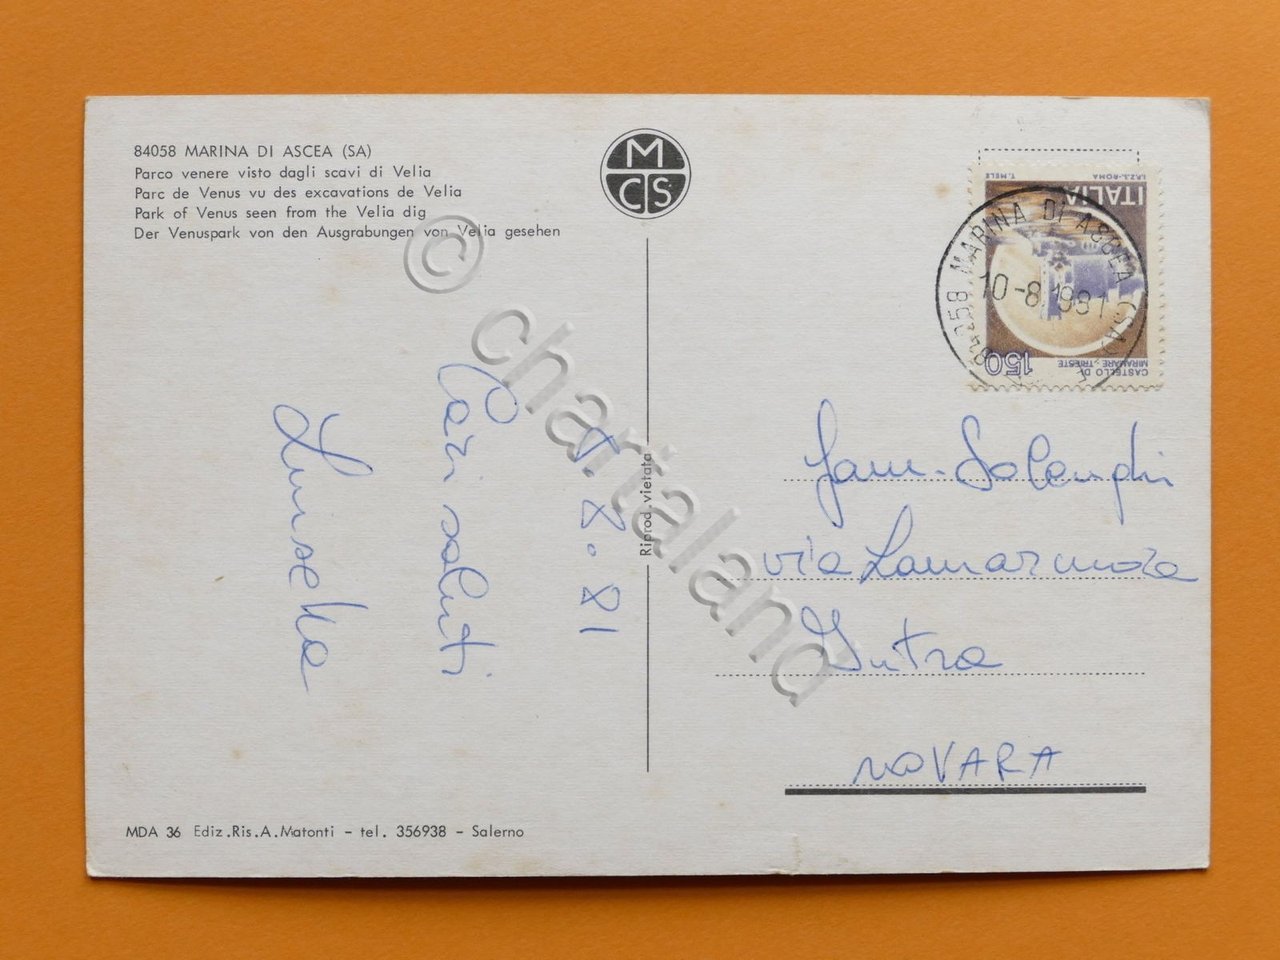 84058 MARINA DI ASCEA (SA)
Parco venere visto dagli scavi di Velia
Parc de Venus vu des excavations de Velia
Park of Venus seen from the Velia dig
Der Venuspark von den Ausgrabungen von Velia gesehen
M
CS
I.P.Z.S.-ROMA
T. MELE
ITALIA
150
CASTELLO DI
MIRAMARE, TRIESTE
MARINA DI ASCEA (SA)
10-8 1981
8.8.81
Cari saluti
Luisella
Riprod. vietata
Fam.
via Lamarmora
Intra
NOVARA
MDA 36 Ediz.Ris.A.Matonti - tel. 356938 - Salerno
© chartaland